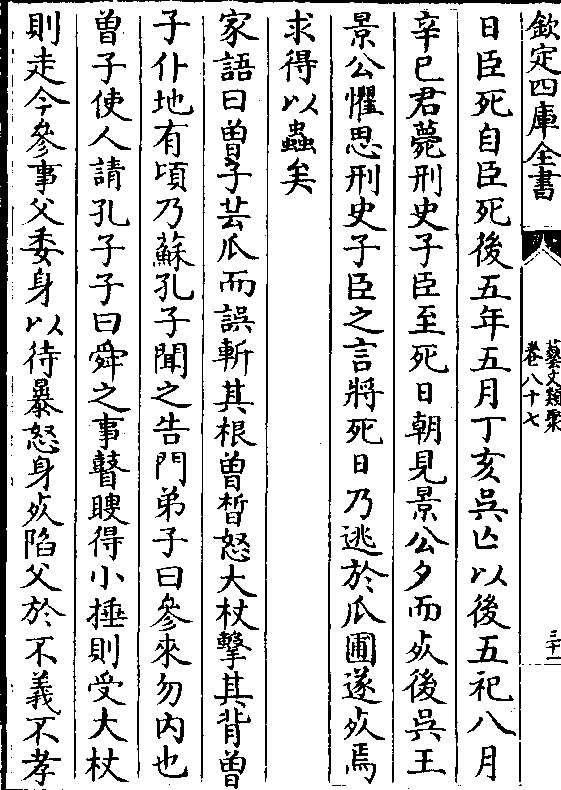 欽定四庫全書
藝文類聚
卷八十七
三十一
日臣死自臣死後五年五月丁亥吳亡以後五祀八月
辛巳君薨刑史子臣至死日朝見景公夕而死後吳王
景公懼思刑史子臣之言將死日乃逃於瓜圃遂死焉
求得以蟲矣
家語曰曾子芸瓜而誤斬其根曾晳怒大杖擊其背曾
子仆地有頃乃蘇孔子聞之告門弟子曰參來勿内也
曾子使人請孔子子曰舜之事瞽瞍得小捶則受大杖
則走今參事父委身以待暴怒身死陷父於不義不孝